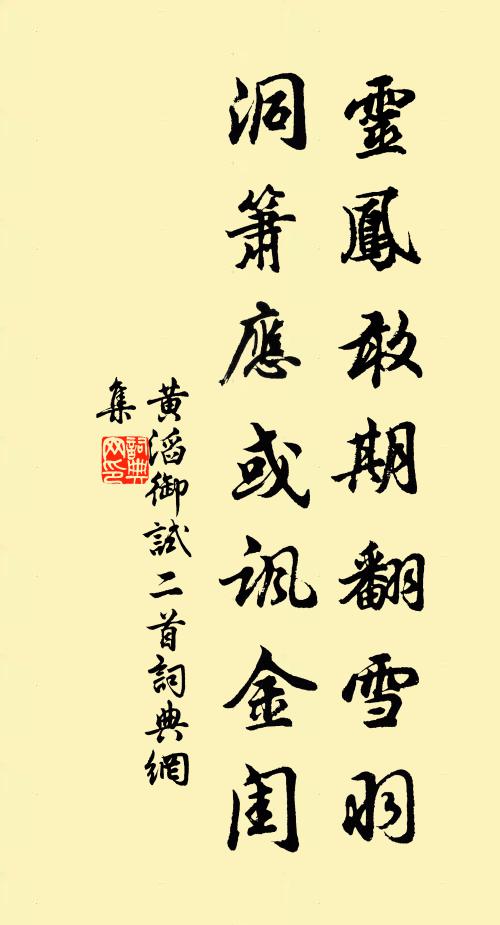 靈鳳敢期翻雪羽
洞簫應或諷金閨
黃滔御試二首詞典網
集
詞典網印